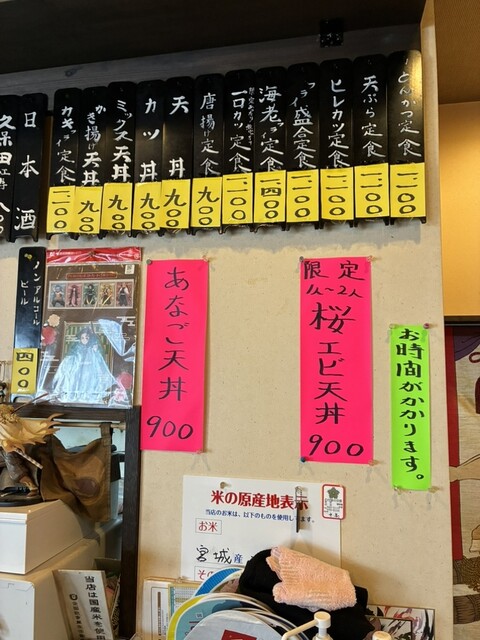 とんかつ定食 一一〇〇
天ぷら定食 一一〇〇
ヒレカツ定食 一一〇〇
フライ盛合定食 一一〇〇
海老フライ定食 一四〇〇
一口カツ定食 一、〇〇
唐揚げ定食 九〇〇
天丼 九〇〇
カツ丼 九〇〇
ミックス天丼 九〇〇
かき揚げ天丼 九〇〇
カキフライ定食 一一〇〇
日本酒
久保田
ノンアルコールビール
四〇〇
限定
1人〜2人
桜エビ天丼
900
あなご天丼
900
お時間がかかります。
米の原産地表示
当店のお米は、以下のものを使用しています。
お米
宮城産
当店は国産米を使用